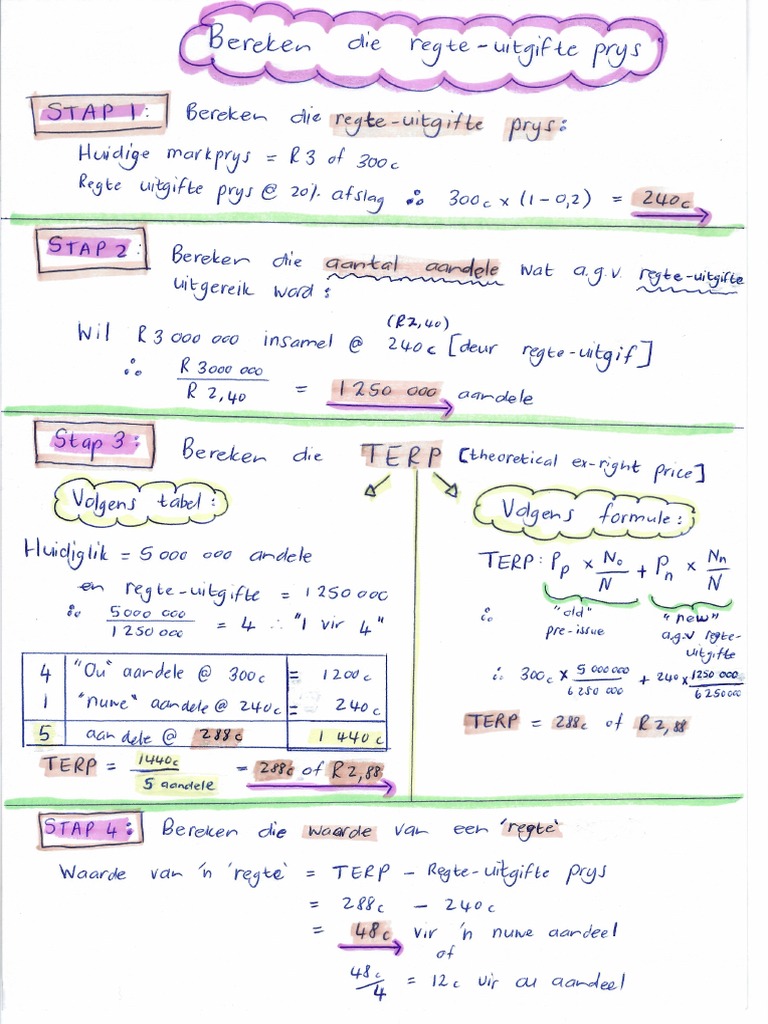 Bereken die regte-uitgifte prys
STAP 1: Bereken die regte-uitgifte prys:
Huidige markprys = R3 of 300c
Regte uitgifte prys @ 20% afslag ∴ 300c x (1 - 0,2) = 240c
STAP 2: Bereken die aantal aandele wat a.g.v. regte-uitgifte
uitgereik word:
(R2,40)
Wil R3 000 000 insamel @ 240c [deur regte-uitgif]
∴ R 3000 000 / R 2,40 = 1 250 000 aandele
Stap 3: Bereken die TERP [theoretical ex-right price]
Volgens tabel:
Huidiglik = 5 000 000 andele
en regte-uitgifte = 1 250 000
∴ 5 000 000 / 1 250 000 = 4 ∴ "1 vir 4"
4 "Ou" aandele @ 300c = 1200c
1 "nuwe" aandele @ 240c = 240c
5 aandele @ 288c 1 440c
TERP = 1440c / 5 aandele = 288c of R2,88
Volgens formule:
TERP: Pp x No/N + Pn x Nn/N
∴ "old" "new"
pre-issue a.g.v regte-
uitgifte
∴ 300c x 5 000 000 / 6 250 000 + 240 x 1250 000 / 6 250 000
TERP = 288c of R2,88
STAP 4: Bereken die waarde van een 'regte'
Waarde van 'n 'regte' = TERP - Regte-uitgifte prys
= 288c - 240c
= 48c vir 'n nuwe aandeel
of
48c/4 = 12c vir ou aandeel